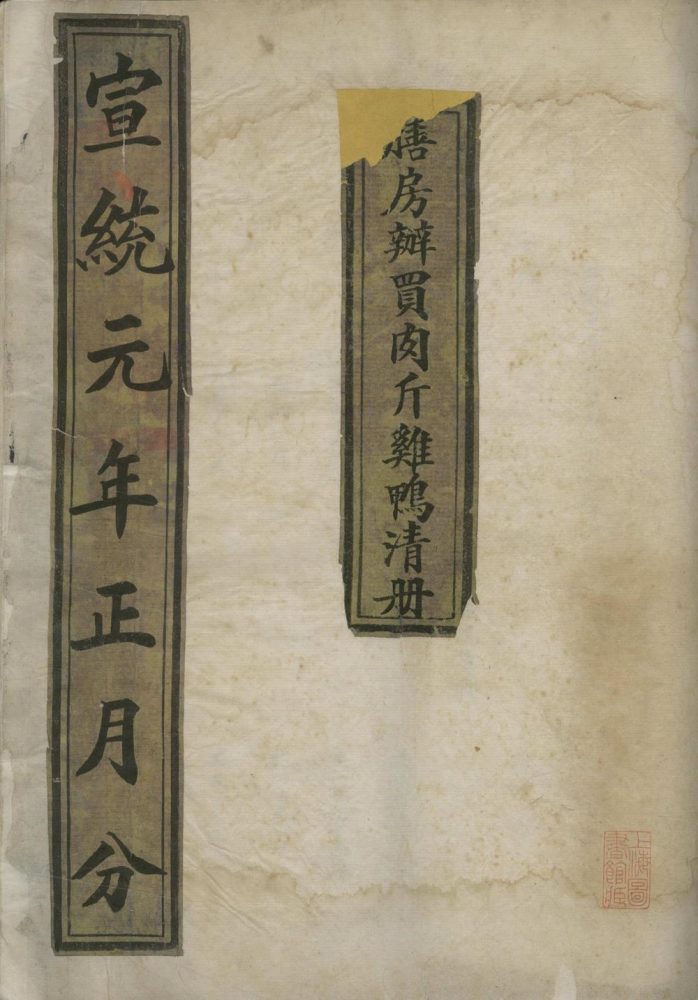 宣統元年正月分
膳房辦買肉斤雞鴨清册
上海圖
書館藏